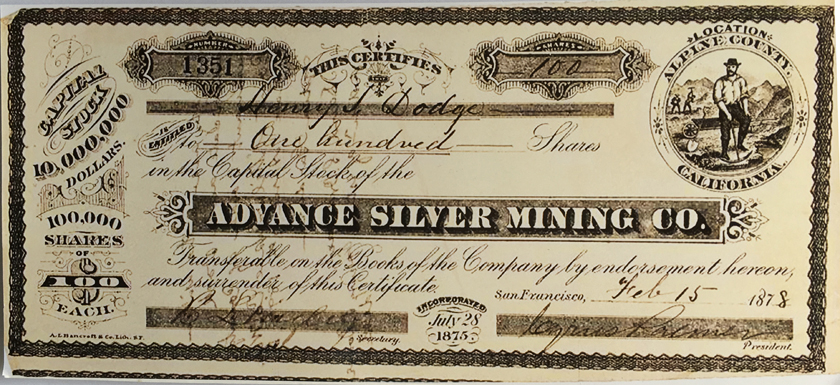 NUMBER
1351
THIS CERTIFIES
THAT
SHARES
100
LOCATION
ALPINE COUNTY,
CALIFORNIA.
CAPITAL
STOCK
10,000,000
DOLLARS.
100,000
SHARES
OF
$100
EACH.
Henry L Dodge
IS ENTITLED
to One hundred Shares
in the Capital Stock of the
ADVANCE SILVER MINING CO.
Transferable on the Books of the Company by endorsement hereon,
and surrender of this Certificate.
San Francisco, Feb 15 1878
INCORPORATED
July 28
1875
Secretary.
President.
A.L. Bancroft & Co. Lith. S.F.